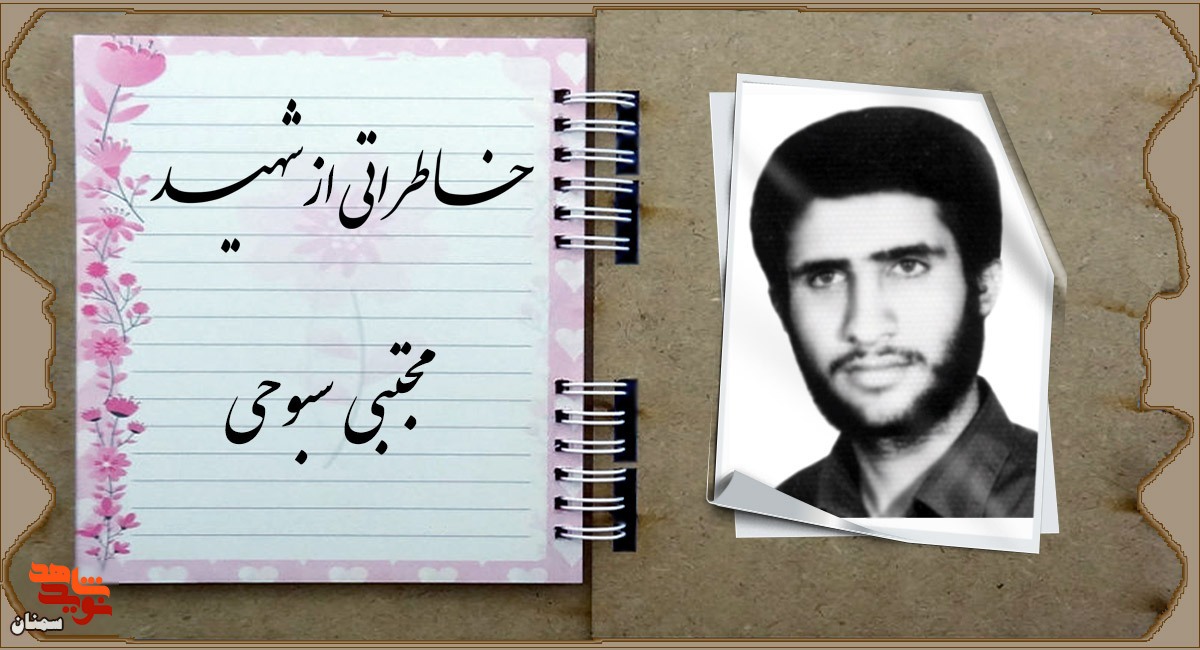 خاطراتی از شهید
مجتبی سبوحی
نوید شاهد
سمنان